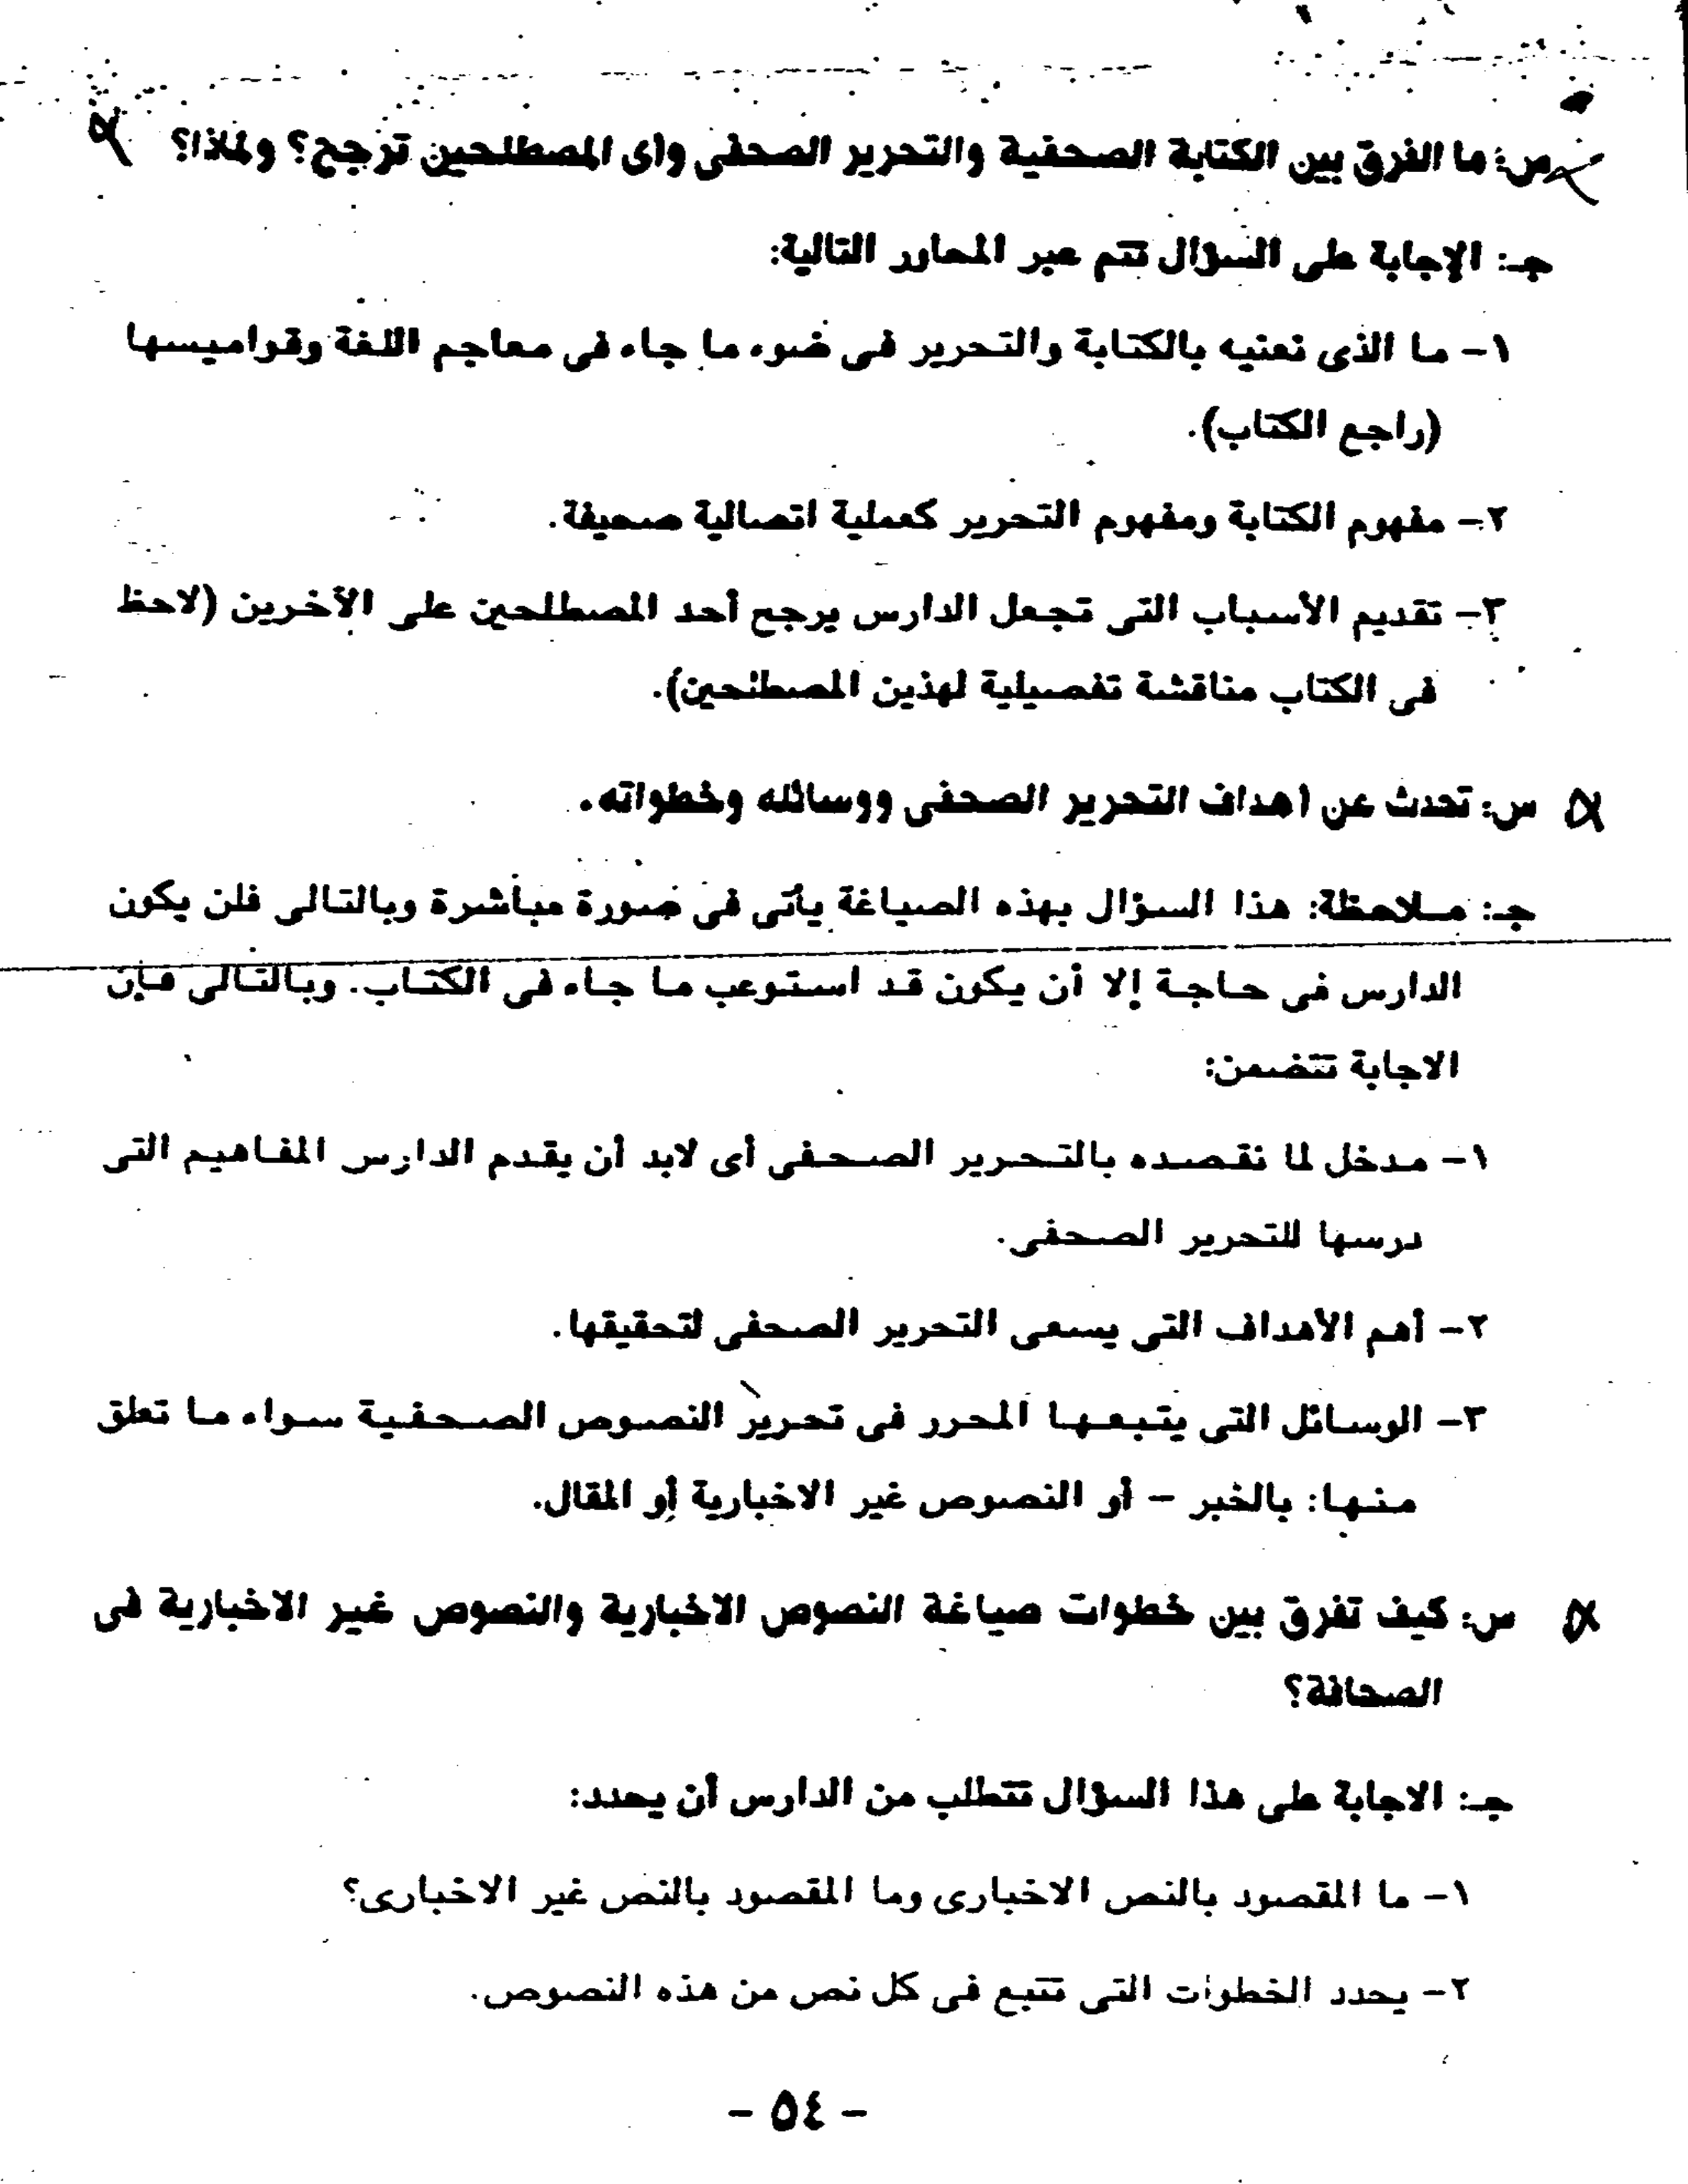 س: ما الفرق بين الكتابة الصحفية والتحرير الصحفى وأى المصطلحين ترجح؟ ولماذا؟
جـ: الإجابة على السؤال تتم عبر المحاور التالية:
١- ما الذى نعنيه بالكتابة والتحرير فى ضوء ما جاء فى معاجم اللغة وقواميسها
(راجع الكتاب).
٢- مفهوم الكتابة ومفهوم التحرير كعملية اتصالية صحيفة.
٣- تقديم الأسباب التى تجعل الدارس يرجح أحد المصطلحين على الآخرين (لاحظ
فى الكتاب مناقشة تفصيلية لهذين المصطلحين).
س: تحدث عن أهداف التحرير الصحفى ووسائله وخطواته.
جـ: مـلاحظة: هذا السؤال بهذه الصياغة يأتى فى صورة مباشرة وبالتالى فلن يكون
الدارس فى حاجة إلا أن يكون قد استوعب ما جاء فى الكتاب. وبالتالى فإن
الاجابة تتضمن:
١- مدخل لما نقصده بالتحرير الصحفى أى لابد أن يقدم الدارس المفاهيم التى
درسها للتحرير الصحفى.
٢- أهم الأهداف التى يسعى التحرير الصحفى لتحقيقها.
٣- الوسائل التى يتبعها المحرر فى تحرير النصوص الصحفية سواء ما تعلق
منها: بالخبر - أو النصوص غير الاخبارية أو المقال.
س: كيف تفرق بين خطوات صياغة النصوص الاخبارية والنصوص غير الاخبارية فى
الصحافة؟
جـ: الاجابة على هذا السؤال تتطلب من الدارس أن يحدد:
١- ما المقصود بالنص الاخبارى وما المقصود بالنص غير الاخبارى؟
٢- يحدد الخطوات التى تتبع فى كل نص من هذه النصوص.
- ٥٤ -